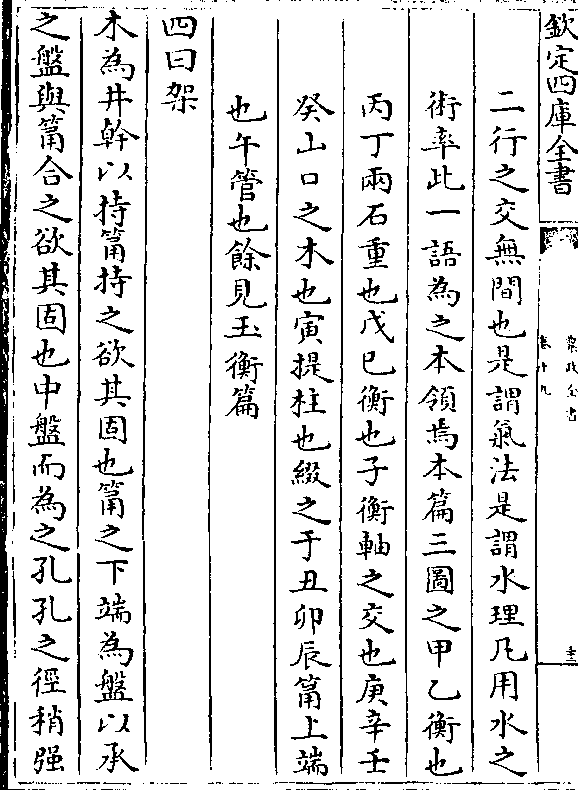 欽定四庫全書
農政全書
卷十九
二行之交無間也是謂氣法是謂水理凡用水之
術率此一語為之本領焉本篇三圖之甲乙衡也
丙丁兩石重也戊己衡也子衡軸之交也庚辛壬
癸山口之木也寅提柱也綴之于丑卯辰筩上端
也午管也餘見玉衡篇
四曰架
木為井幹以持筩持之欲其固也筩之下端為盤以承
之盤與筩合之欲其固也中盤而為之孔孔之徑稍强